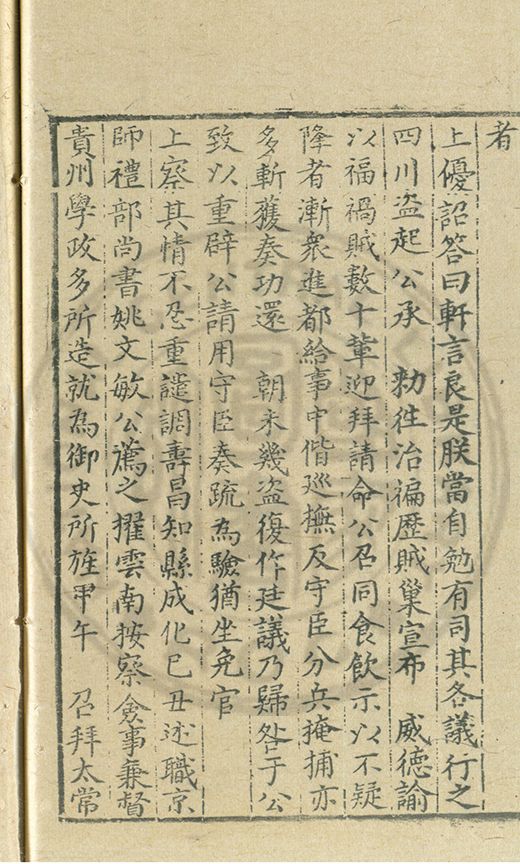 者
上優詔答曰軒言良是朕當自勉有司其各議行之
四川盗起公承 勑徃治徧歷賊巢宣布 威德諭
以福禍賊數十軰迎拜請命公召同食飲示以不疑
降者漸衆進都給事中偕廵撫及守臣分兵掩捕亦
多斬獲奏功還 朝未幾盗復作廷議乃歸咎于公
致以重辟公請用守臣奏疏為驗猶坐免官
上察其情不忍重譴調壽昌知縣成化已丑述職京
師禮部尚書姚文敏公薦之擢雲南按察僉事兼督
貴州學政多所造就為御史所旌甲午 召拜太常